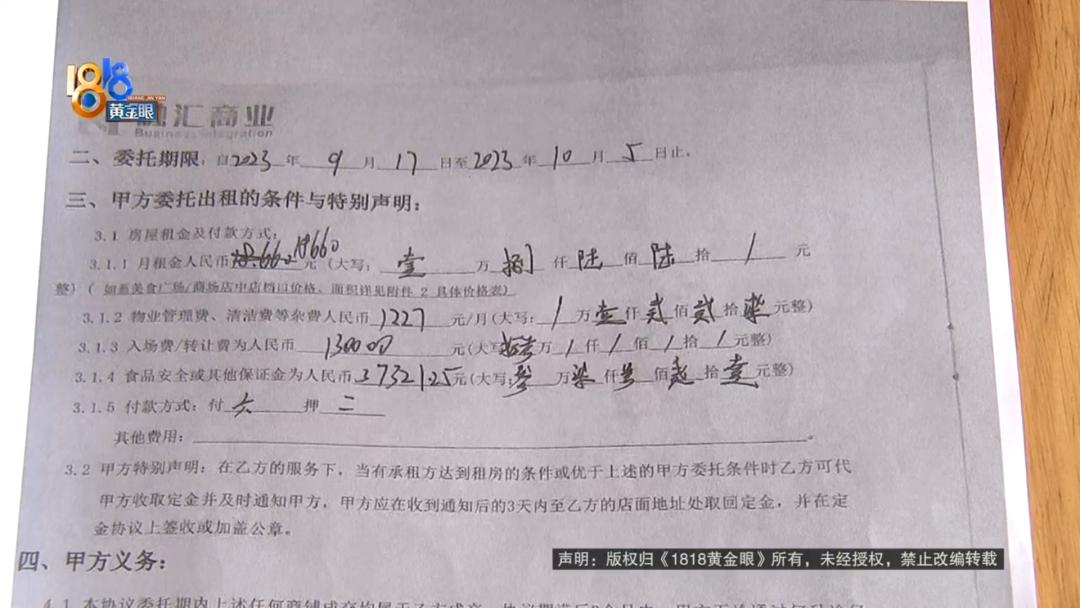 1818
黄金眼
汇商业
Business Integration
二、委托期限：自2023年9月17日至2023年10月5日止。
三、甲方委托出租的条件与特别声明：
3.1 房屋租金及付款方式：
3.1.1 月租金人民币18660元（大写：壹万捌仟陆佰陆拾/元
整）（如遇美食广场/商场店中店档口价格、面积详见附件 2 具体价格表）
3.1.2 物业管理费、清洁费等杂费人民币1227元/月(大写：/万壹仟贰佰贰拾柒元整）
3.1.3 入场费/转让费为人民币130000元(大写 万/仟/佰/拾/元整）
3.1.4 食品安全或其他保证金为人民币37321.25元(大写：叁万柒仟 佰 拾壹元整）
3.1.5 付款方式：付六 押二
其他费用：
3.2 甲方特别声明：在乙方的服务下，当有承租方达到租房的条件或优于上述的甲方委托条件时乙方可代
甲方收取定金并及时通知甲方，甲方应在收到通知后的3天内至乙方的店面地址处取回定金，并在定
金协议上签收或加盖公章。
四、甲方义务：
声明：版权归《1818黄金眼》所有，未经授权，禁止改编转载
4.1 本协议委托期内上述任何商铺成交均属于乙方成交